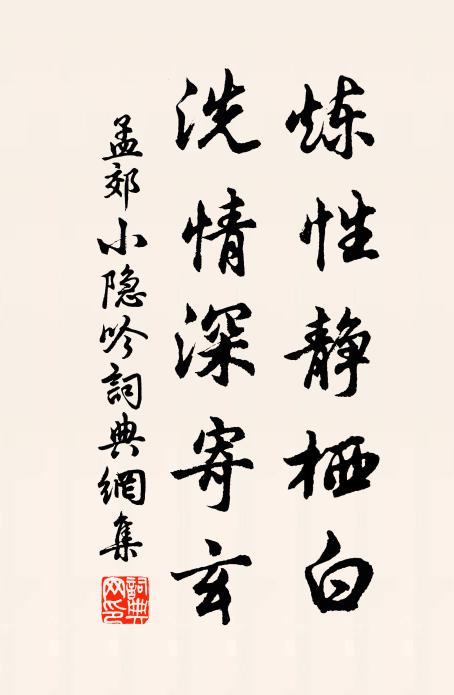 炼性静栖白
洗情深寄玄
孟郊小隐吟詞典網集
詞典网印